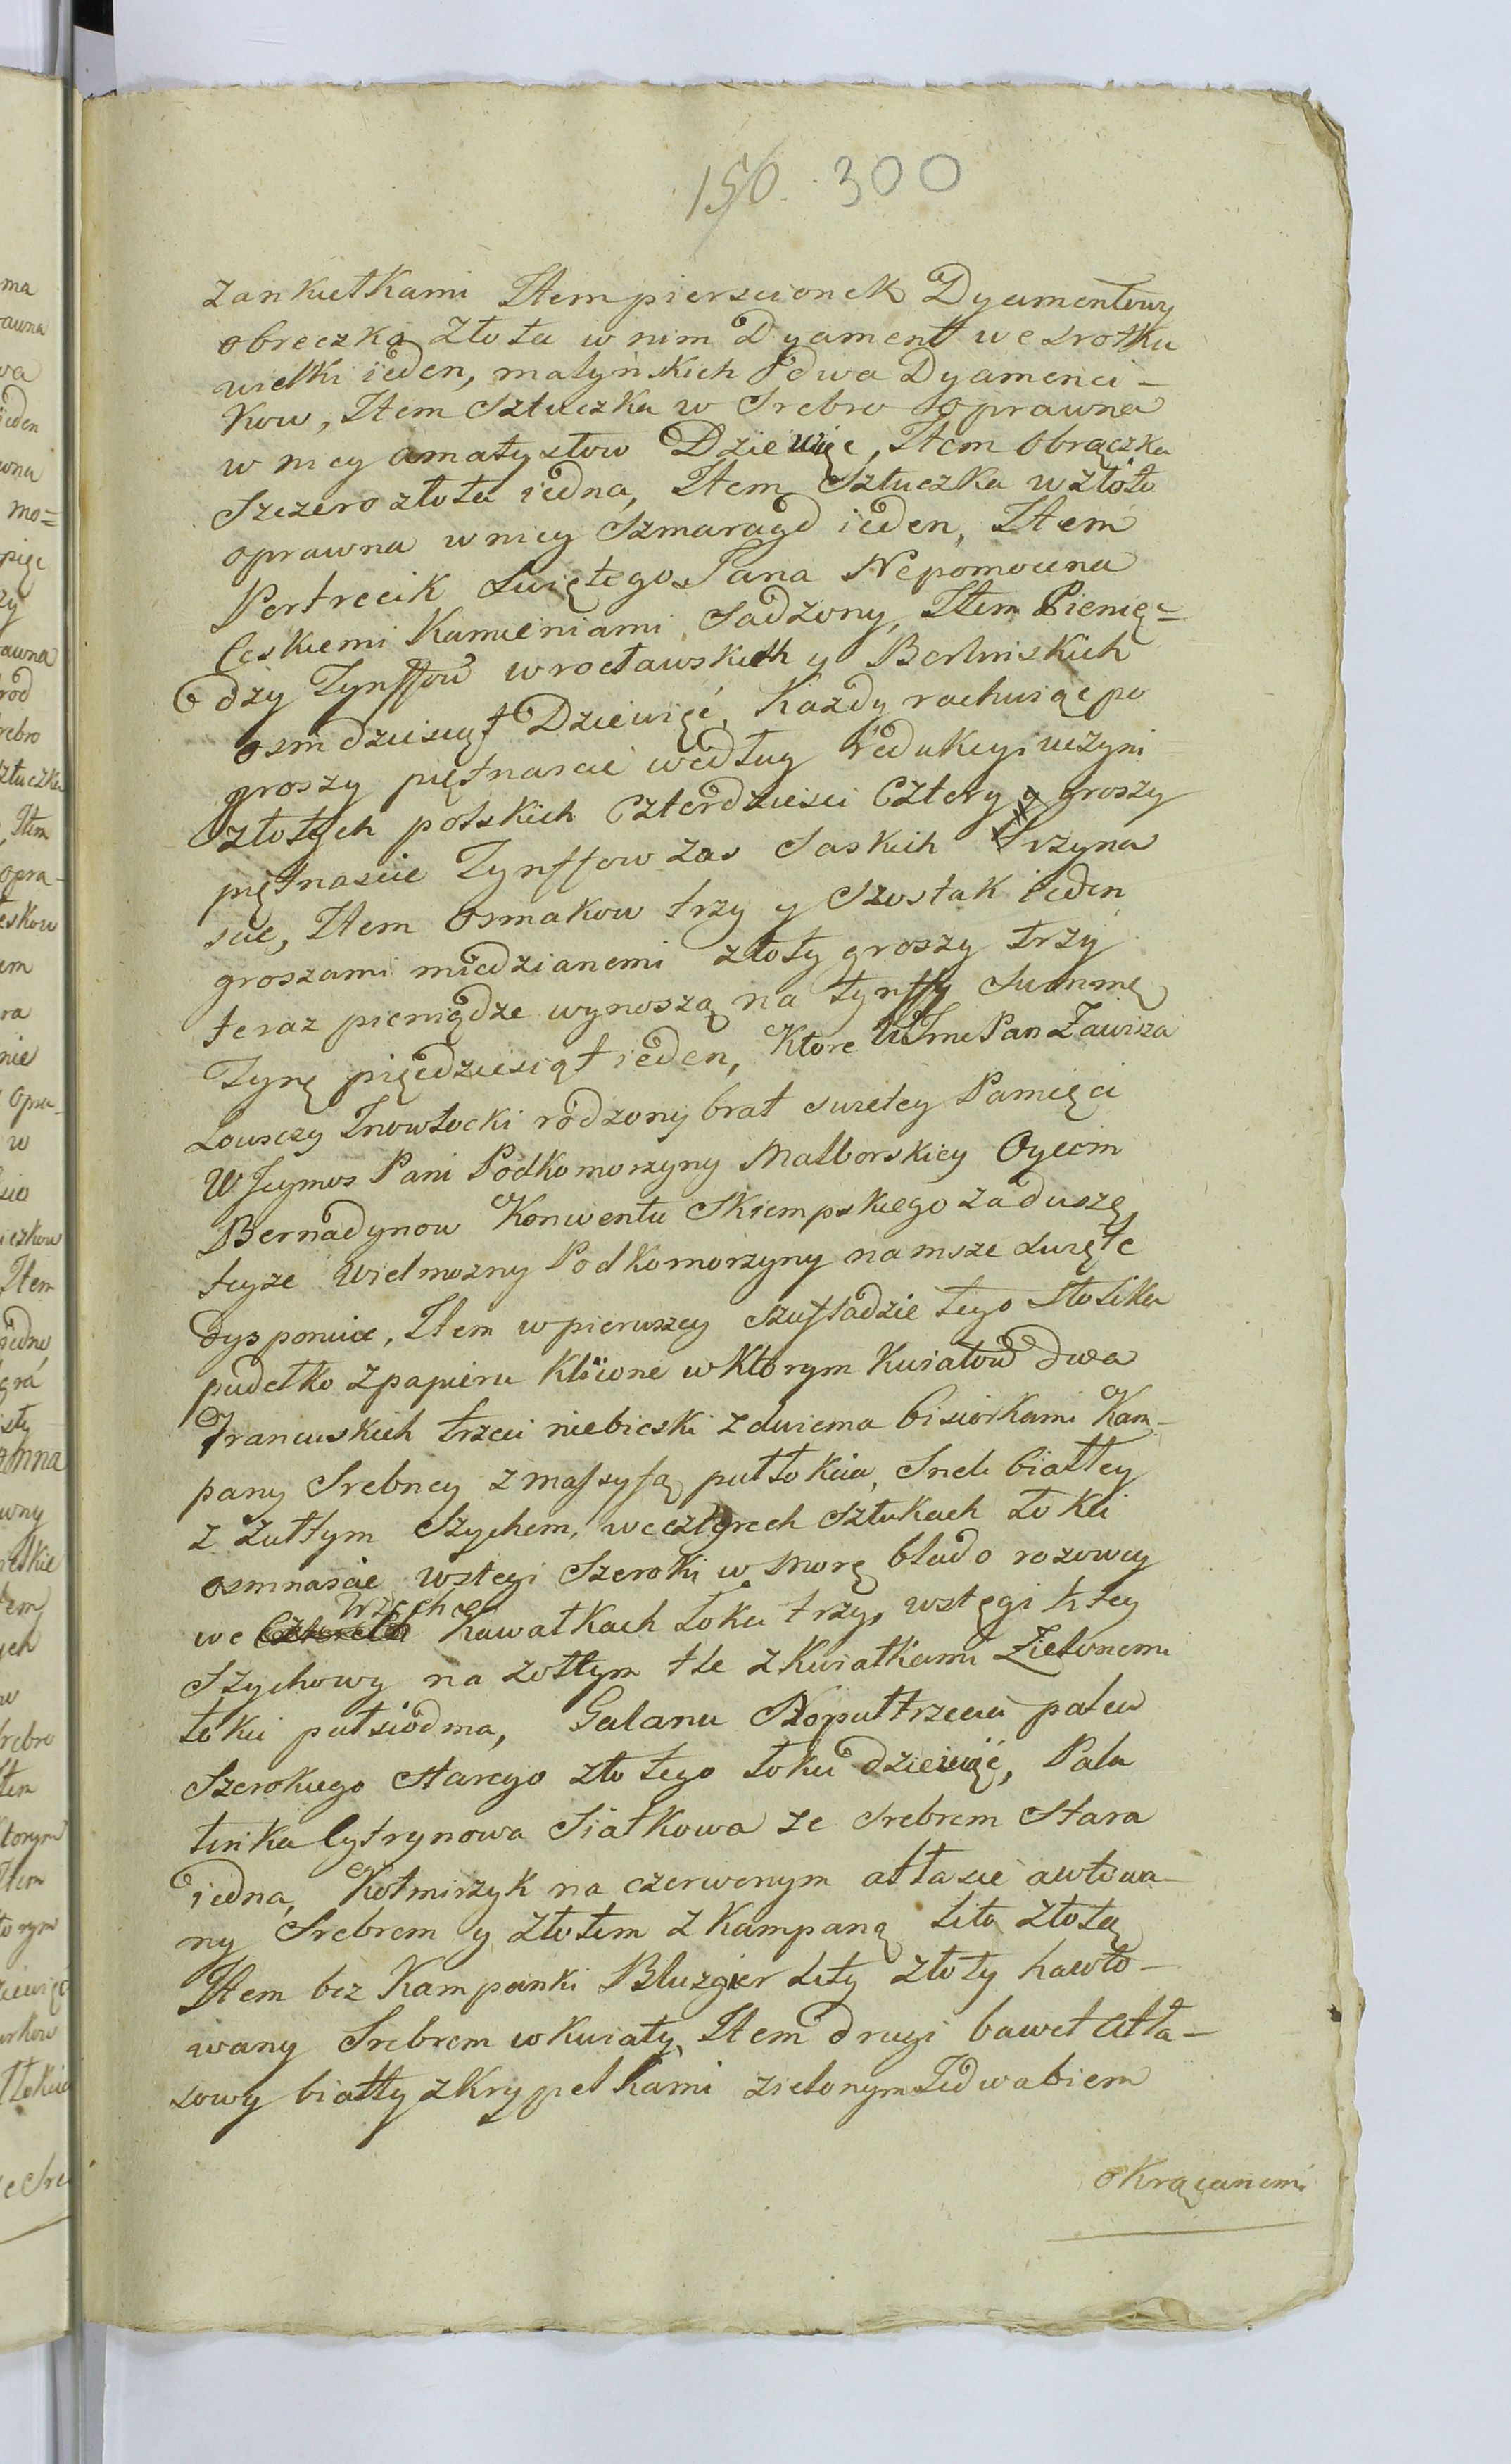 150. 300
zankietkami Item pierscionek Dyamentowy
obreczka złota w nim Dyament we srotku
wielki ieden, malyńskich dwa Dyamenci-
kow, Item Sztuczka w Srebro oprawna
w niey amatystow Dziewięc, Item obrączka
Szczero złota iedna, Item Sztuczka w złoto
oprawna w niey Szmaragd ieden, Item
Portrecik Swiętego Jana Nepomocena
Ceskiemi Kamieniami Sadzony, Item Pienię-
dzy Tynffow wrocławskich y Berlinskich
osmdziesiąt Dziewięć, Kazdy rachuiąc po
groszy piętnascie według redukcyi uczyni
złotych polskich Czterdziesci Cztery y groszy
piętnascie Tynffow zas Saskich Trzyna
scie, Item osmakow trzy y Szostak ieden
groszami miedzianemi złoty groszy trzy
teraz pieniądze wynoszą na tynffy Summę
Tynę pięcdziesiąt ieden, Ktore WJme Pan Zawisza
Łowczy Inowłocki rodzony brat swietey Pamięci
WJeymos Pani Podkomorzyny Malborskiey Oycom
Bernadynow Konwentu Skiempskiego za duszę
teyze Wielmozny Podkomorzyny na msze swięte
dysponuie, Item w pierwszey szufladzie tego Stolika
pudełko z papieru Kliione w Ktorym kwiatow dwa
Francuskich trzeci niebieski z dwiema bisiorkami Kam-
pany Srebney z massyją puł łokcia, Sneli białłey
z żułtym Szychem, we czterech Sztukach łokci
osmnascie wstegi Szeroki w morę blado rozowey
we trzech Kawałkach łokci trzy, wstęgi litey
Szychowy na zołtym tle z Kwiatkami Zielonemi
łokci pułsiodma, Galanu Szopułtrzecia palca
Szerokiego Starego złotego łokci dziewięć, Pala
tinka Cytrynowa Siatkowa ze Srebrem Stara
iedna, Kołmirzyk na czerwonym atłasie awtowa-
ny Srebrem y złotem z Kampaną litą złotą
Item bez Kampanki Bluzgier lity złoty hawto-
wany Srebrem w Kwiaty, Item drugi bawet Atła-
sowy biatły z Krypelkami zielonym Jedwabiem
okrącanemi